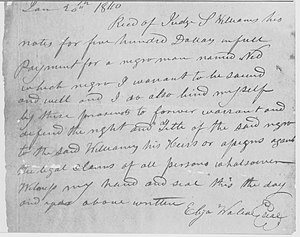 Jan 20th 1840
Recd of Judge S Williams his
notes for five hundred Dollars in full
Payment for a negro man named Ned
which negro I warrant to be sound
and well and I do also bind myself
by these presants to forever warrant and
defend the right and Title of the said negro
to the said Williams his Heirs or assigns against
the legal claims of all persons whatsoever
Witness my hand and seal this the day
and year above written
Eliza Wallace Seal